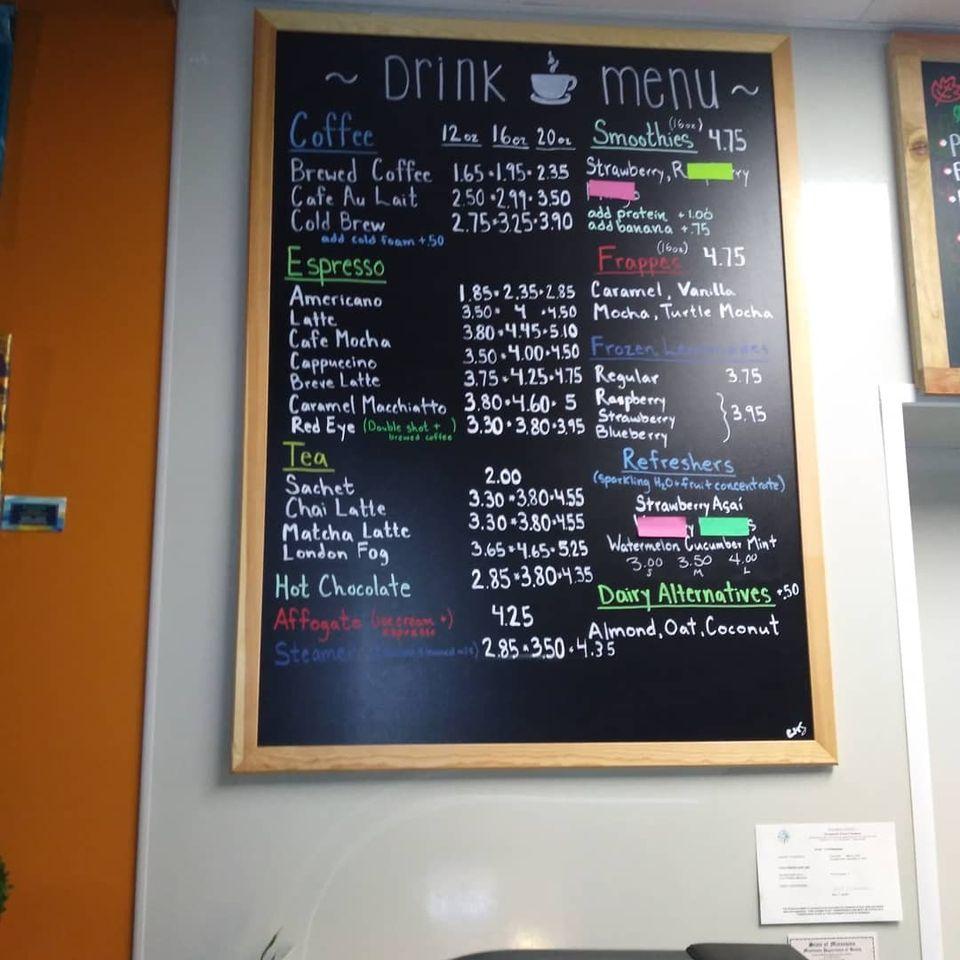 ~ Drink menu ~
Coffee 12oz 16oz 20oz
Brewed Coffee 1.65 • 1.95 • 2.35
Cafe Au Lait 2.50 • 2.99 • 3.50
Cold Brew 2.75 • 3.25 • 3.90
add cold foam +.50
Espresso
Americano 1.85 • 2.35 • 2.85
Latte 3.50 • 4 • 4.50
Cafe Mocha 3.80 • 4.45 • 5.10
Cappuccino 3.50 • 4.00 • 4.50
Breve Latte 3.75 • 4.25 • 4.75
Caramel Macchiatto 3.80 • 4.60 • 5
Red Eye (Double shot + brewed coffee) 3.30 • 3.80 • 3.95
Tea
Sachet 2.00
Chai Latte 3.30 • 3.80 • 4.55
Matcha Latte 3.30 • 3.80 • 4.55
London Fog 3.65 • 4.65 • 5.25
Hot Chocolate 2.85 • 3.80 • 4.35
Affogato (ice cream + espresso) 4.25
Steamer 2.85 • 3.50 • 4.35
Smoothies (16oz) 4.75
Strawberry,
add protein +1.00
add banana +.75
Frappes (16oz) 4.75
Caramel, Vanilla
Mocha, Turtle Mocha
Frozen Lemonades
Regular 3.75
Raspberry
Strawberry } 3.95
Blueberry
Refreshers
(sparkling H2O + fruit concentrate)
Strawberry Açaí
Watermelon Cucumber Mint
3.00 3.50 4.00
S M L
Dairy Alternatives +.50
Almond, Oat, Coconut
State of Minnesota